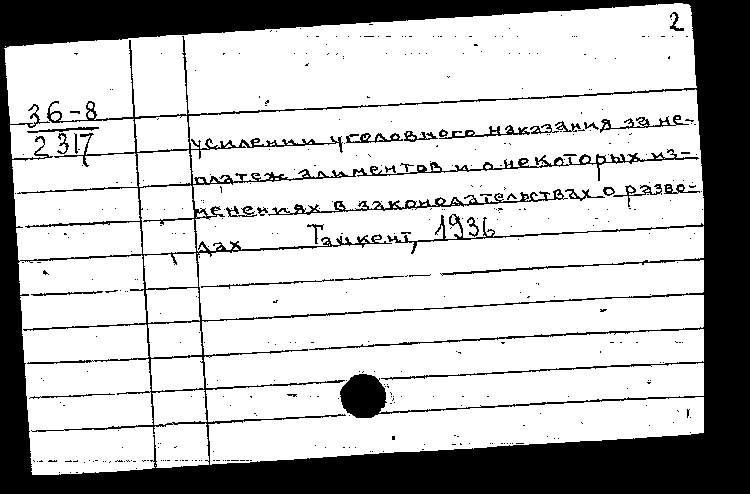 2
36-8
2317
усилении уголовного наказания за не-
платеж алиментов и о некоторых из-
менениях в законодательствах о разво-
дах Ташкент, 1936